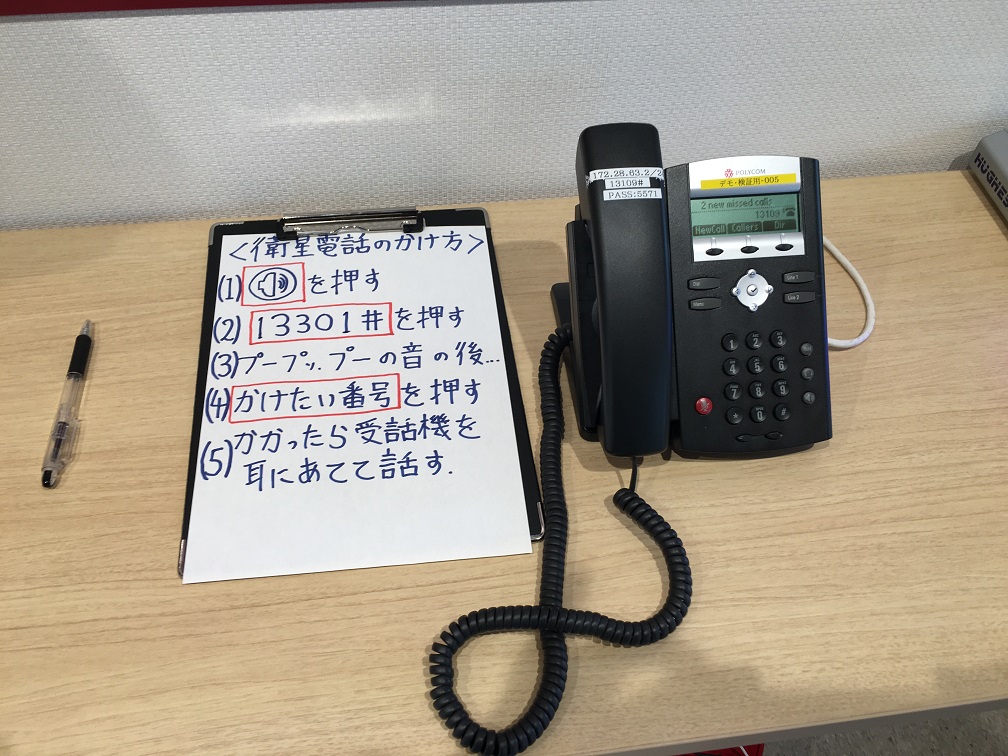 <衛星電話のかけ方>
(1) を押す
(2) 13301# を押す
(3) プープップーの音の後…
(4) かけたい番号を押す
(5) かかったら受話機を
耳にあてて話す.
172.28.63.2/2
13109#
PASS:5571
POLYCOM
デモ・検証用-005
2 new missed calls
13109
NewCall Callers Dir
Menu
Line 1
Line 2
1 2 3
4 5 6
7 8 9
* 0 #
HUGHES